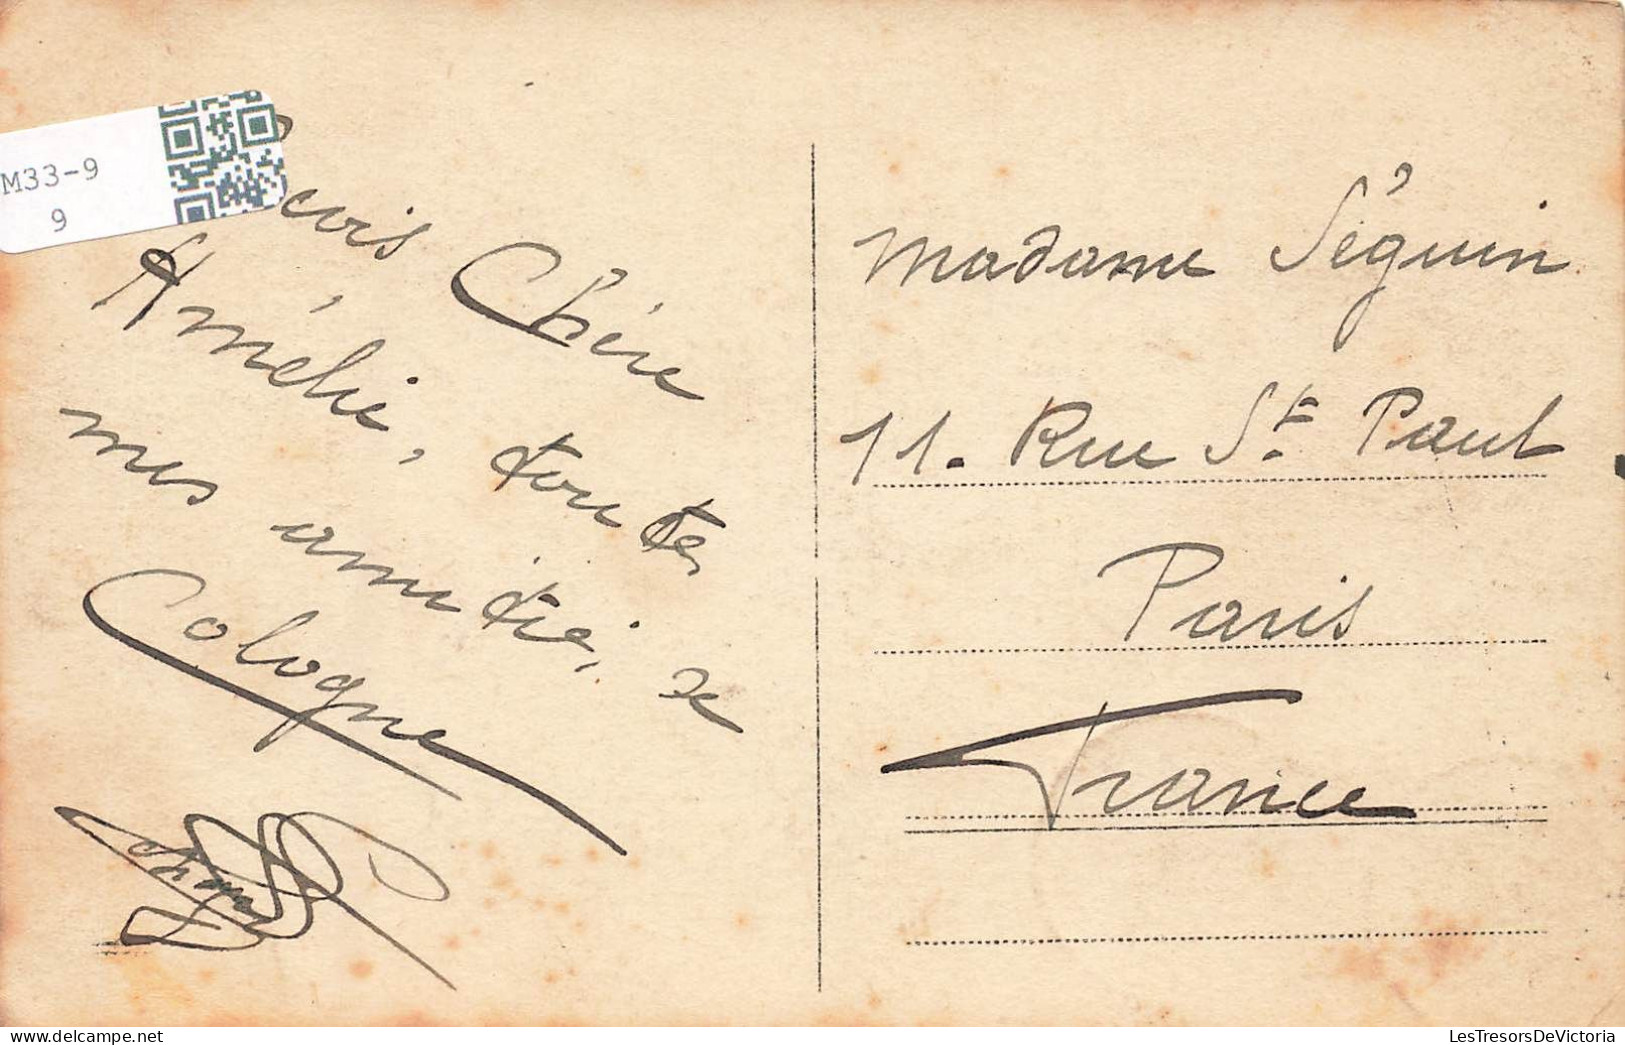 M33-9
9
Chère
Amélie, toutes
mes amitiés, de
Cologne
Madame Séguin
11. Rue St. Paul
Paris
France
LesTresorsDeVictoria